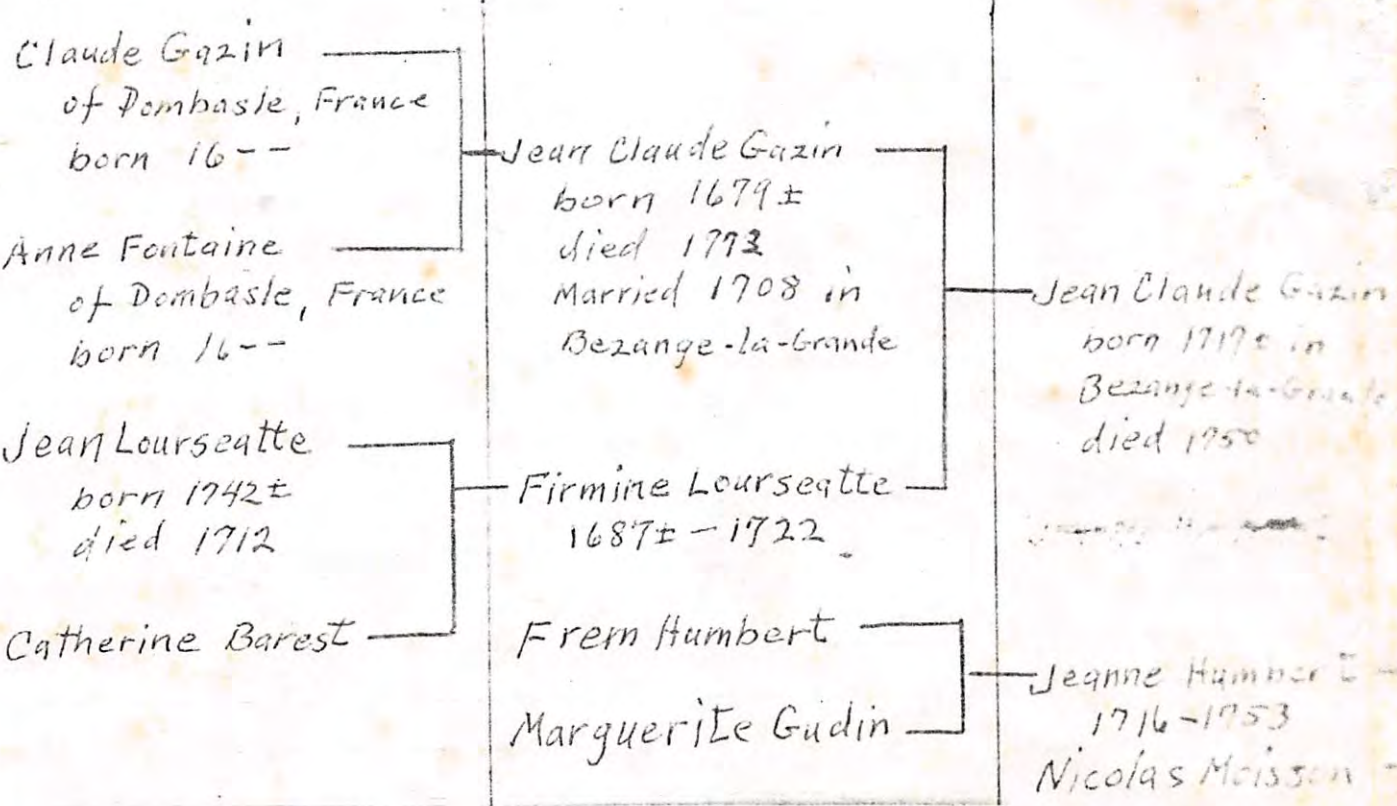 Claude Gazin
of Dombasle, France
born 16--
Anne Fontaine
of Dombasle, France
born 16--
Jean Lourseatte
born 1742±
died 1712
Catherine Barest
Jean Claude Gazin
born 1679±
died 1773
Married 1708 in
Bezange-la-Grande
Firmine Lourseatte
1687± - 1722
Frem Humbert
Marguerite Gudin
Jean Claude Gazin
born 1717± in
Bezange-la-Grande
died 1750
Jeanne Humbert
1716-1753
Nicolas Moisson